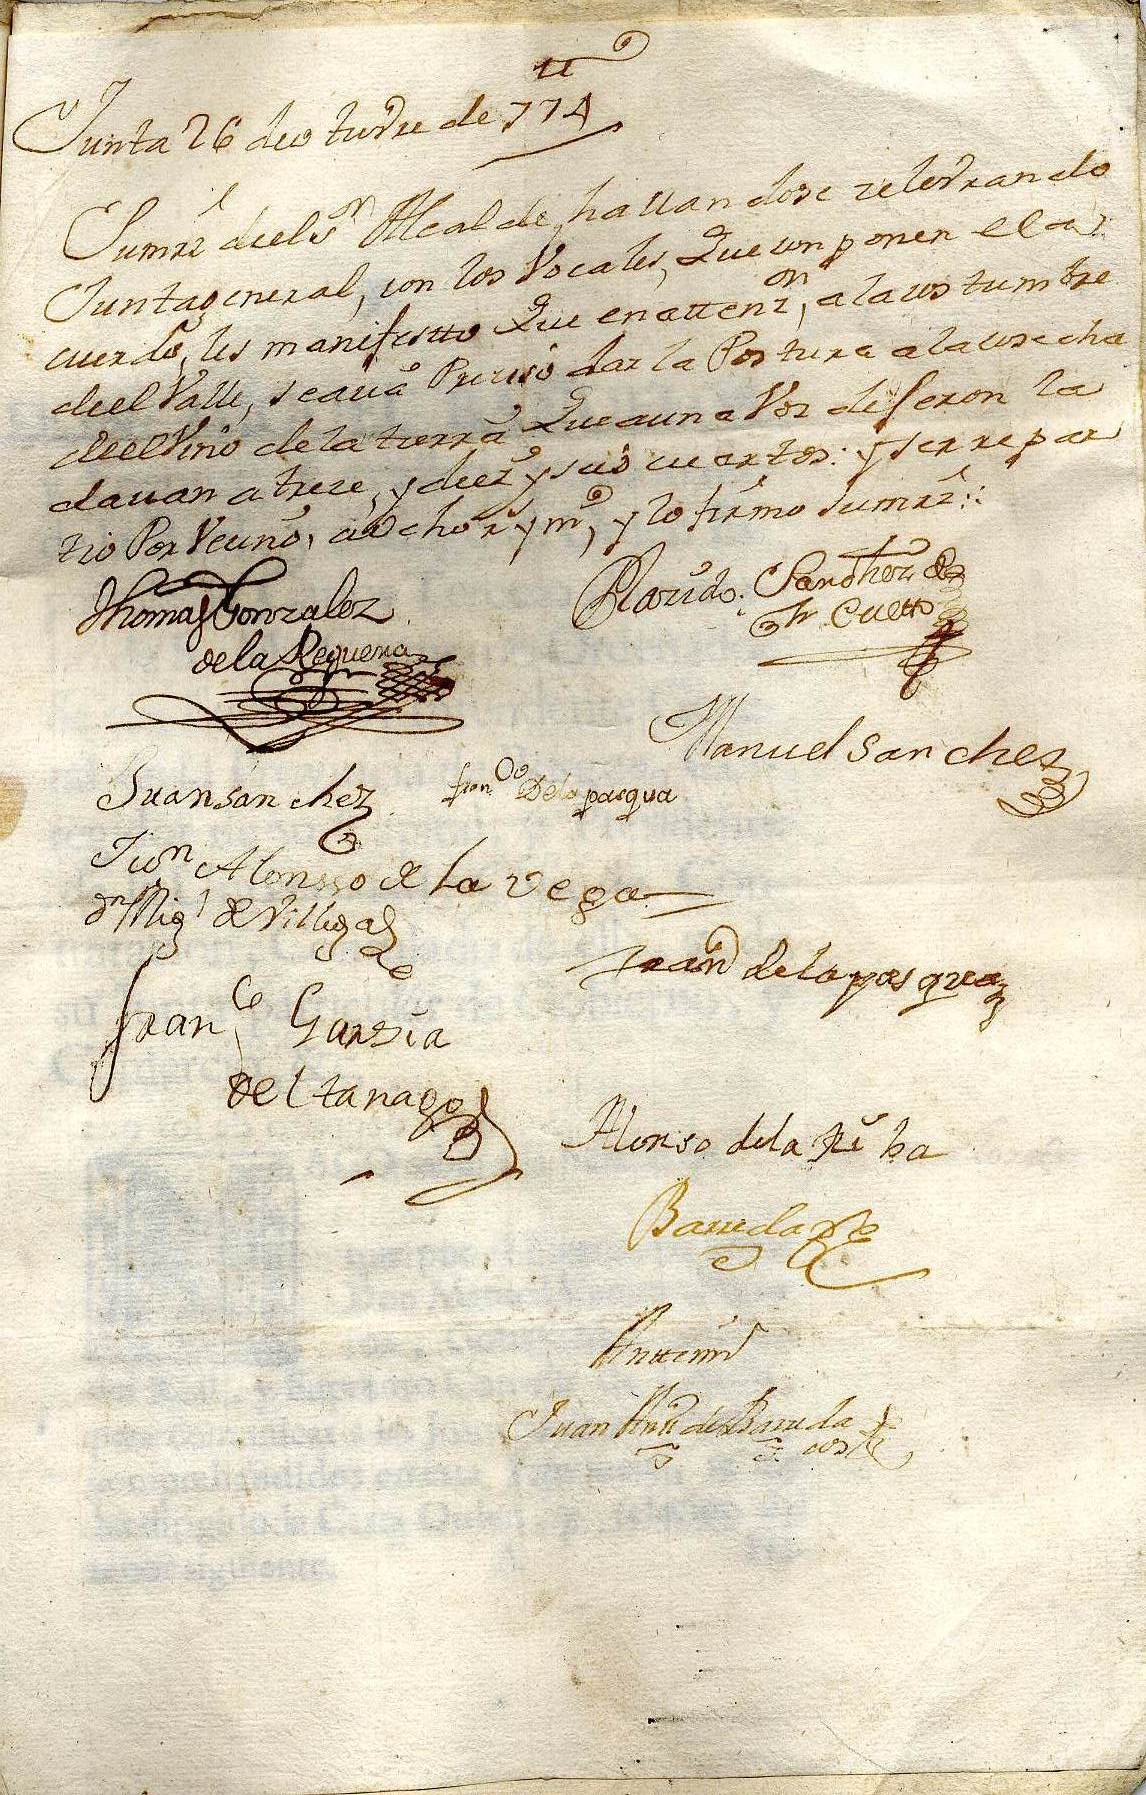 Junta 26 de otubre de 774
Sumrd. de el Sr Alcalde, hallandose zelebrando
Junta general, con los Vocales, Que conponen el a
cuerdo, les manifestto Que en attenzon, a la costumbre
de el Valle, seauia Preciso dar la Postura a la cosecha
de el Vino de la tierra Que a una Voz dijeron la
dauan a treze, y diez y seis cuartos: y se repar
tio Por Vecino, a ocho rs y mo, y lo firmo Sumrd.
Thomas Gonzalez
de la Requena
Plazido Sanchez de
Cuetto
Manuel Sanchez
Juan Sanchez
franco. De la pasqua
Alonsso de la vega
dn Migl de Villegas
Frand de la pasqua
Franco Garzia
del tanago
Alonso de la
Barreda
Antte mi
Juan Anto de Barreda